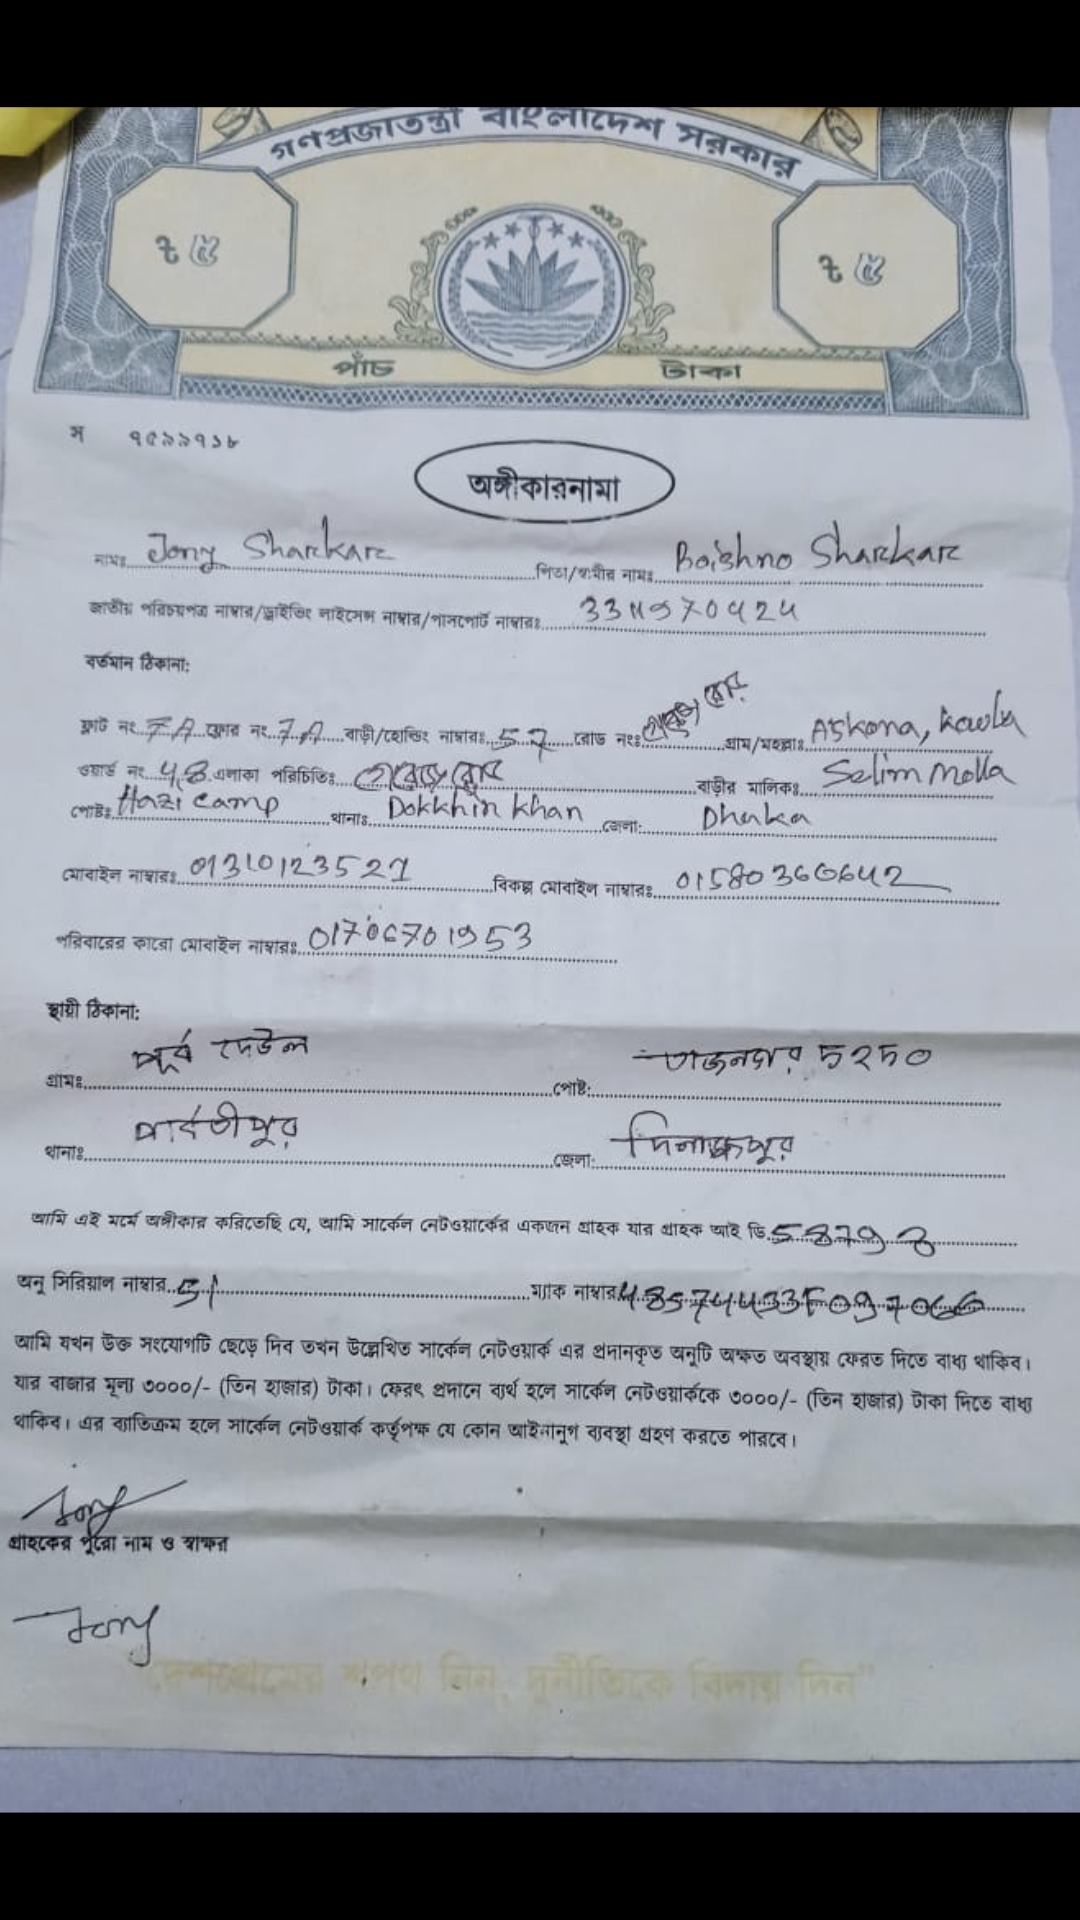 গণপ্রজাতন্ত্রী বাংলাদেশ সরকার
ট ৫ ট ৫
পাঁচ টাকা
স ৭৫৯৯৭১৮
অঙ্গীকারনামা
নামঃ Jony Sharkar পিতা/স্বামীর নামঃ Boishno Sharkar
জাতীয় পরিচয়পত্র নাম্বার/ড্রাইভিং লাইসেন্স নাম্বার/পাসপোর্ট নাম্বারঃ
বর্তমান ঠিকানা:
ফ্লাট নং 7A ফ্লোর নং 7A বাড়ী/হোল্ডিং নাম্বারঃ 57 রোড নংঃ গ্রাম/মহল্লাঃ Askona, Kawla
ওয়ার্ড নং 48 এলাকা পরিচিতিঃ বাড়ীর মালিকঃ Selim Molla
পোষ্টঃ Hazi camp থানাঃ Dokkhin Khan জেলা: Dhaka
মোবাইল নাম্বারঃ 01310123527 বিকল্প মোবাইল নাম্বারঃ 01580366642
পরিবারের কারো মোবাইল নাম্বারঃ 01706701953
স্থায়ী ঠিকানা:
গ্রামঃ পূর্ব দেউল পোষ্ট: ৫২৫০
থানাঃ পার্বতীপুর জেলা: দিনাজপুর
আমি এই মর্মে অঙ্গীকার করিতেছি যে, আমি সার্কেল নেটওয়ার্কের একজন গ্রাহক যার গ্রাহক আই ডি 58798
অনু সিরিয়াল নাম্বার 51 ম্যাক নাম্বার
আমি যখন উক্ত সংযোগটি ছেড়ে দিব তখন উল্লেখিত সার্কেল নেটওয়ার্ক এর প্রদানকৃত অনুটি অক্ষত অবস্থায় ফেরত দিতে বাধ্য থাকিব।
যার বাজার মূল্য ৩০০০/- (তিন হাজার) টাকা। ফেরৎ প্রদানে ব্যর্থ হলে সার্কেল নেটওয়ার্ককে ৩০০০/- (তিন হাজার) টাকা দিতে বাধ্য
থাকিব। এর ব্যাতিক্রম হলে সার্কেল নেটওয়ার্ক কর্তৃপক্ষ যে কোন আইনানুগ ব্যবস্থা গ্রহণ করতে পারবে।
Jony
গ্রাহকের পুরো নাম ও স্বাক্ষর
Jony
"দেশপ্রেমের শপথ নিন, দুর্নীতিকে বিদায় দিন"